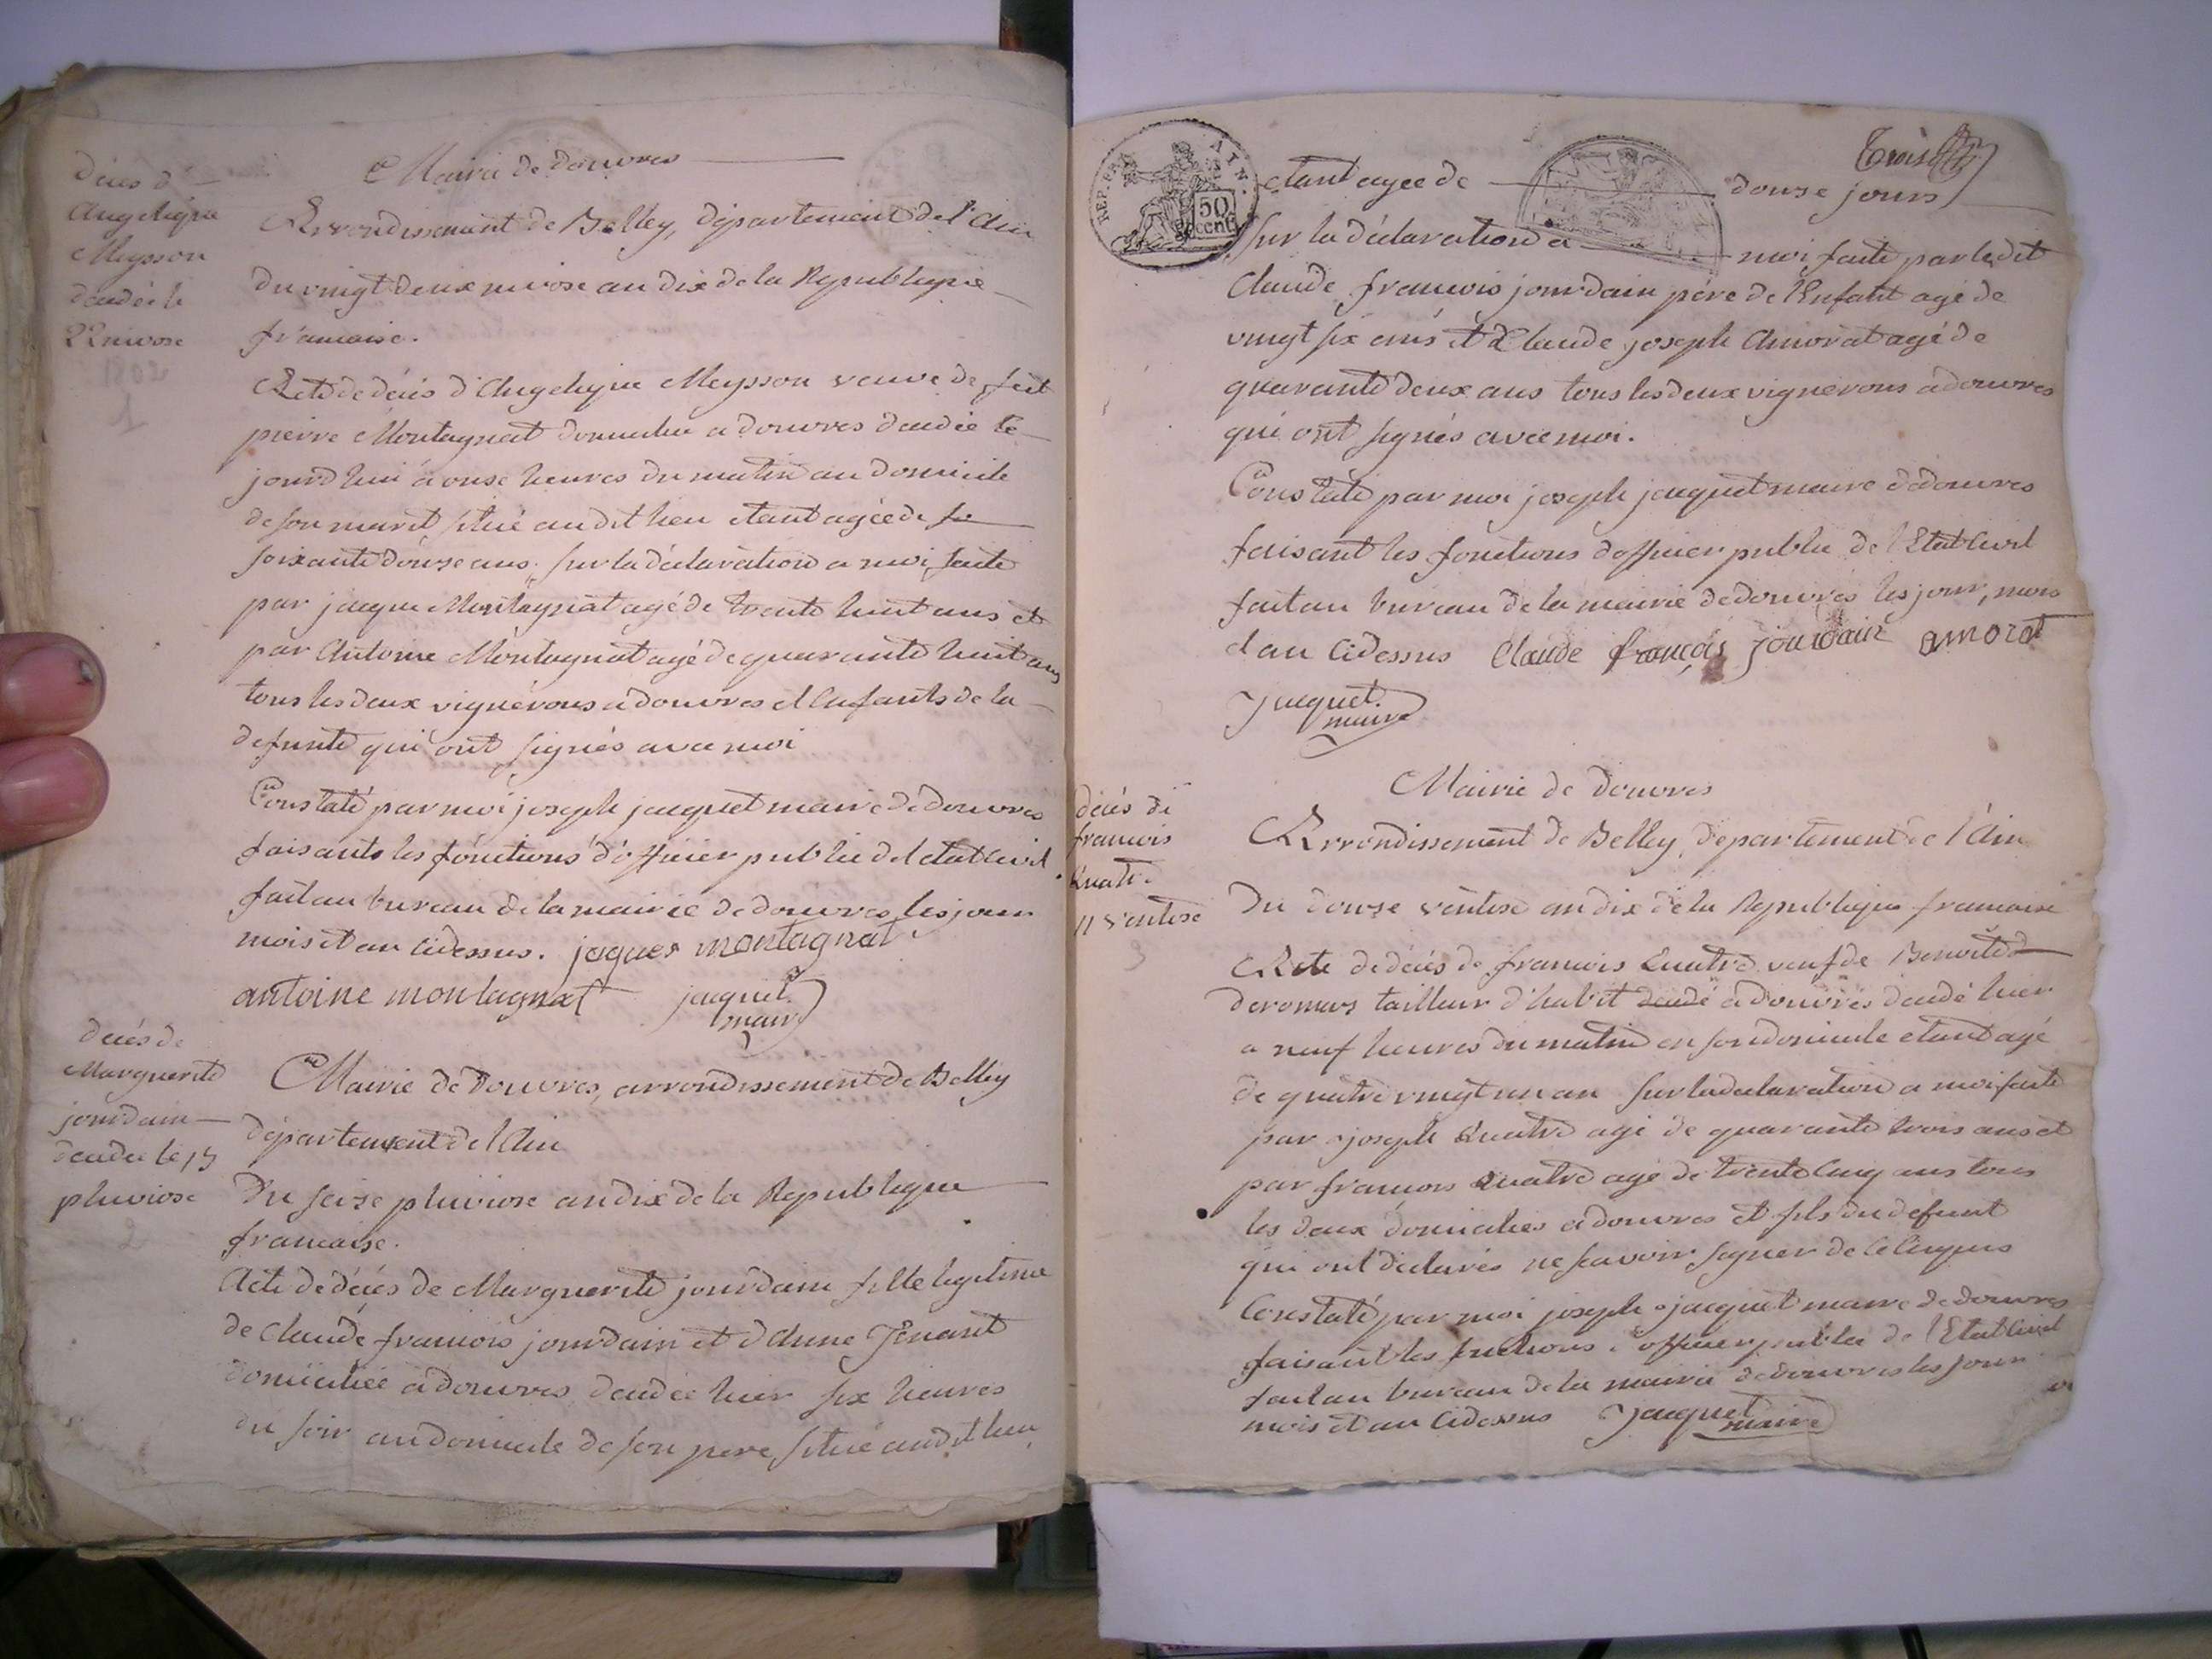 décés d'
Angelique
Meysson
décédée le
22 nivose
1802
1
Mairie de douvres
Arrondissement de Belley, département de l'Ain
du vingt deux nivose an dix de la Republique
francaise.
Acte de décés d'Angelique Meysson veuve de feu
pierre Montagnat domiciliée a douvres décédée ce
jourd'hui a onze heures du matin au domicile
de son marit, situé audit lieu etant agée de
soixante douze ans. sur la déclaration a moi faite
par jacque Montagnat agé de trente huit ans et
par Antoine Montagnat agé de quarante huit ans
tous les deux vignerons a douvres et Enfants de la
defunte qui ont signés avec moi
Constaté par moi joseph jacquet maire de douvres
faisants les fonctions d'officier public de l'etat Civil
fait au bureau de la mairie de douvres, les jour
mois et an cidessus. jaques montagnat
antoine montagnat jacquet
maire
décés de
Marguerite
jourdain
décédée le 15
pluviose
2
Mairie de Douvres, arrondissement de Belley
département de l'Ain
Du seize pluviose an dix de la Republique
francaise.
Acte de décés de Marguerite jourdain fille legitime
de Claude francois jourdain et d'Anne Tenant
domiciliée a douvres décédée hier six heures
du soir au domicile de son pere, situé audit lieu
Trois
REP. FRA. 50 cent
etant agee de douze jours
sur la déclaration a moi faite par ledit
Claude francois jourdain pére de l'Enfant agé de
vingt six ans et Claude joseph Amorat agé de
quarante deux ans tous les deux vignerons a douvres
qui ont signés avec moi.
Constaté par moi joseph jacquet maire de douvres
faisant les fonctions d'officier public de l'Etat Civil
fait au bureau de la mairie de douvres les jour, mois
et an Cidessus Claude françois jourdain amorat
Jacquet
maire
décés de
francois
Quatre
11 ventose
3
Mairie de Douvres
Arrondissement de Belley, departement de l'Ain
Du douze ventose an dix de la Republique francaise
Acte de décés de francois Quatre veuf de Benoite
deromas tailleur d'habit a douvres décédé hier
a neuf heures du matin en son domicile etant agé
de quatre vingt un an sur la declaration a moi faite
par joseph Quatre agé de quarante trois ans et
par francois Quatre agé de trente Cinq ans tous
les deux domiciliés a douvres et fils du defunt
qui ont déclarés ne scavoir signer de Ce Enquis
Constaté par moi joseph jacquet maire de douvres
faisant les fonctions d'officier public de l'Etat Civil
fait au bureau de la mairie de douvres les jour
mois et an Cidessus Jacquet
maire